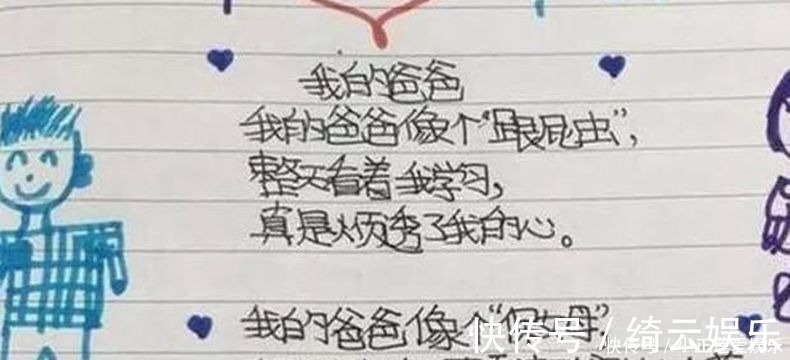 我的爸爸
我的爸爸像个“跟屁虫”,
整天看着我学习,
真是烦透了我的心。
我的爸爸像个“保
快传号 / 绮云娱乐
快传号 /